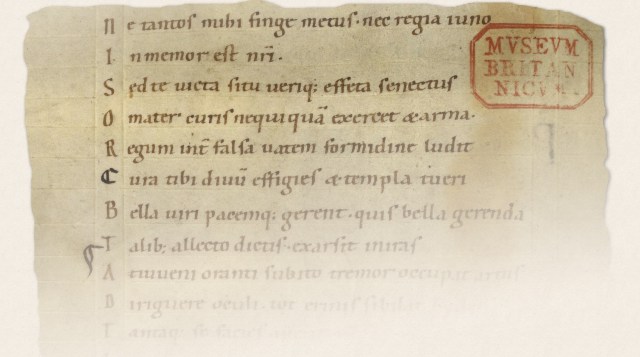 Ne tantos mihi finge metus· nec regia iuno
MVSEVM
Inmemor est nr̄i·
BRITAN
Sed te uicta situ ueriq; effeta senectus
NICVM
O mater curis nequiquā exercet & arma·
Regum int̄ falsa uatem formidine ludit
Cura tibi diuū effigies & templa tueri
Bella uiri pacemq; gerent· quis bella gerenda
Talib; allecto dictis· exarsit in iras
At iuueni oranti subito tremor occupat artus
Diriguere oculi· tot erinis sibilat
Tantaq; se facies